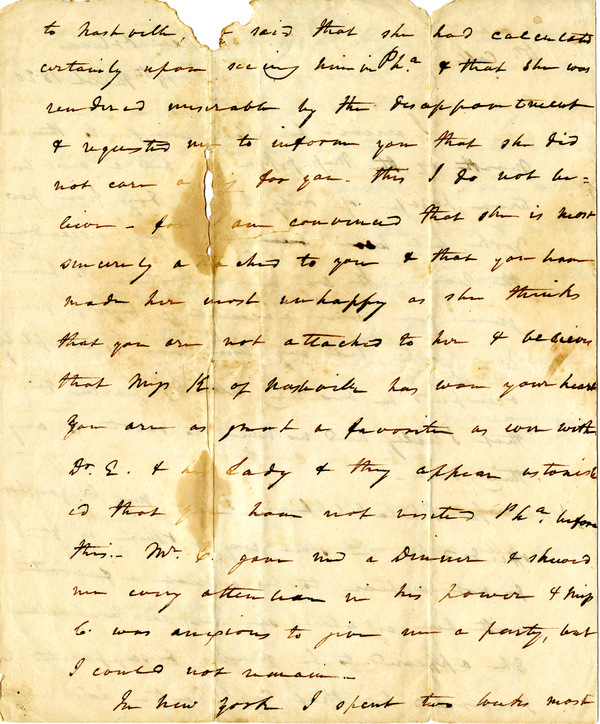 to Nashville, & said that she had calculated
certainly upon seeing him in Pha. & that she was
rendered miserable by the disappointment
& requested me to inform you that she did
not care a for you. this I do not be=
lieve - for I am convinced that she is most
sincerely attached to you & that you have
made her most unhappy as she thinks
that you are not attached to her & believes
that Miss K. of Nashville has won your heart
You are as great a favorite as ever with
Dr. E. & his Lady & they appear astonish
ed that you have not visited Pha. before
this.- Mr. C. gave me a Dinner & shewed
me every attention in his power & Miss
C. was anxious to give me a party, but
I could not remain.-
In New York I spent two weeks most